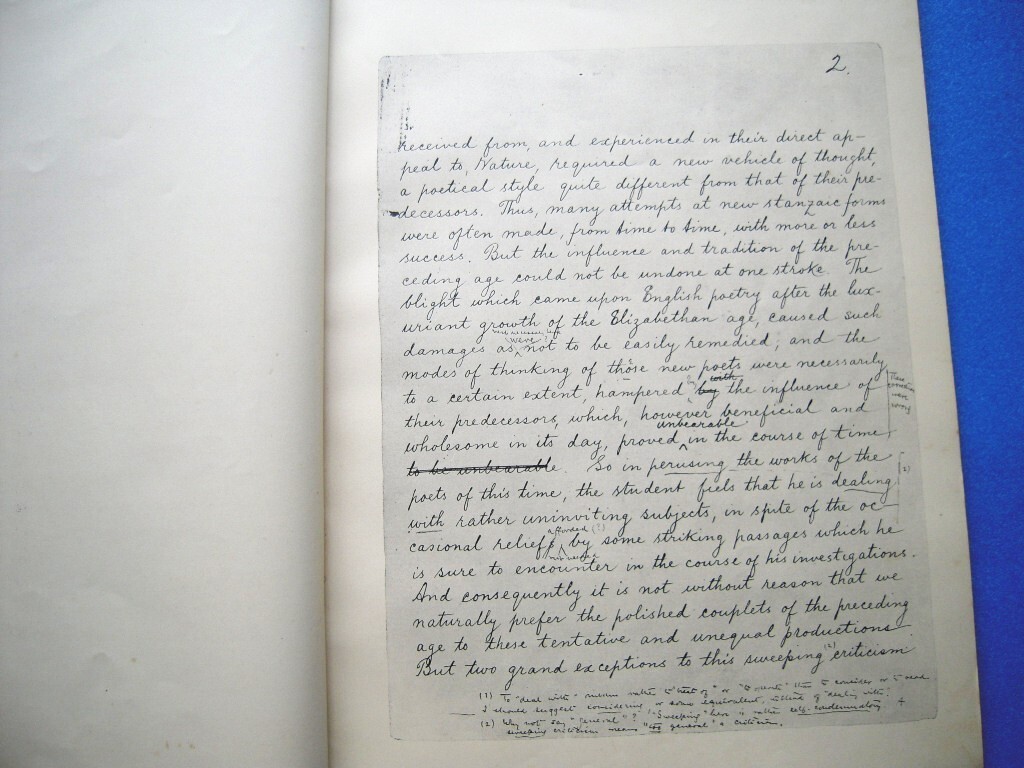 2.
received from, and experienced in their direct ap-
peal to, Nature, required a new vehicle of thought,
a poetical style quite different from that of their pre-
decessors. Thus, many attempts at new stanzaic forms
were often made, from time to time, with more or less
success. But the influence and tradition of the pre-
ceding age could not be undone at one stroke. The
blight which came upon English poetry after the lux-
uriant growth of the Elizabethan age, caused such
were
damages as not to be easily remedied; and the
modes of thinking of those new poets were necessarily
with
to a certain extent, hampered by the influence of
their predecessors, which, however beneficial and
unbearable
wholesome in its day, proved in the course of time,
to be unbearable. So in perusing the works of the
(2)
poets of this time, the student fiels that he is dealing
with rather uninviting subjects, in spite of the oc-
afforded (1)
casional relief, by some striking passages which he
is sure to encounter in the course of his investigations.
And consequently it is not without reason that we
naturally prefer the polished couplets of the preceding
age to these tentative and unequal productions
But two grand exceptions to this sweeping (2) criticism
(1) To "deal with" means rather to "treat of" or than to consider or to read
I should suggest considering, or some equivalent, instead of "dealing with".
(2) Why not say "general"? "Sweeping" here is rather self-condemnatory. A
sweeping criticism means "too general" a criticism.